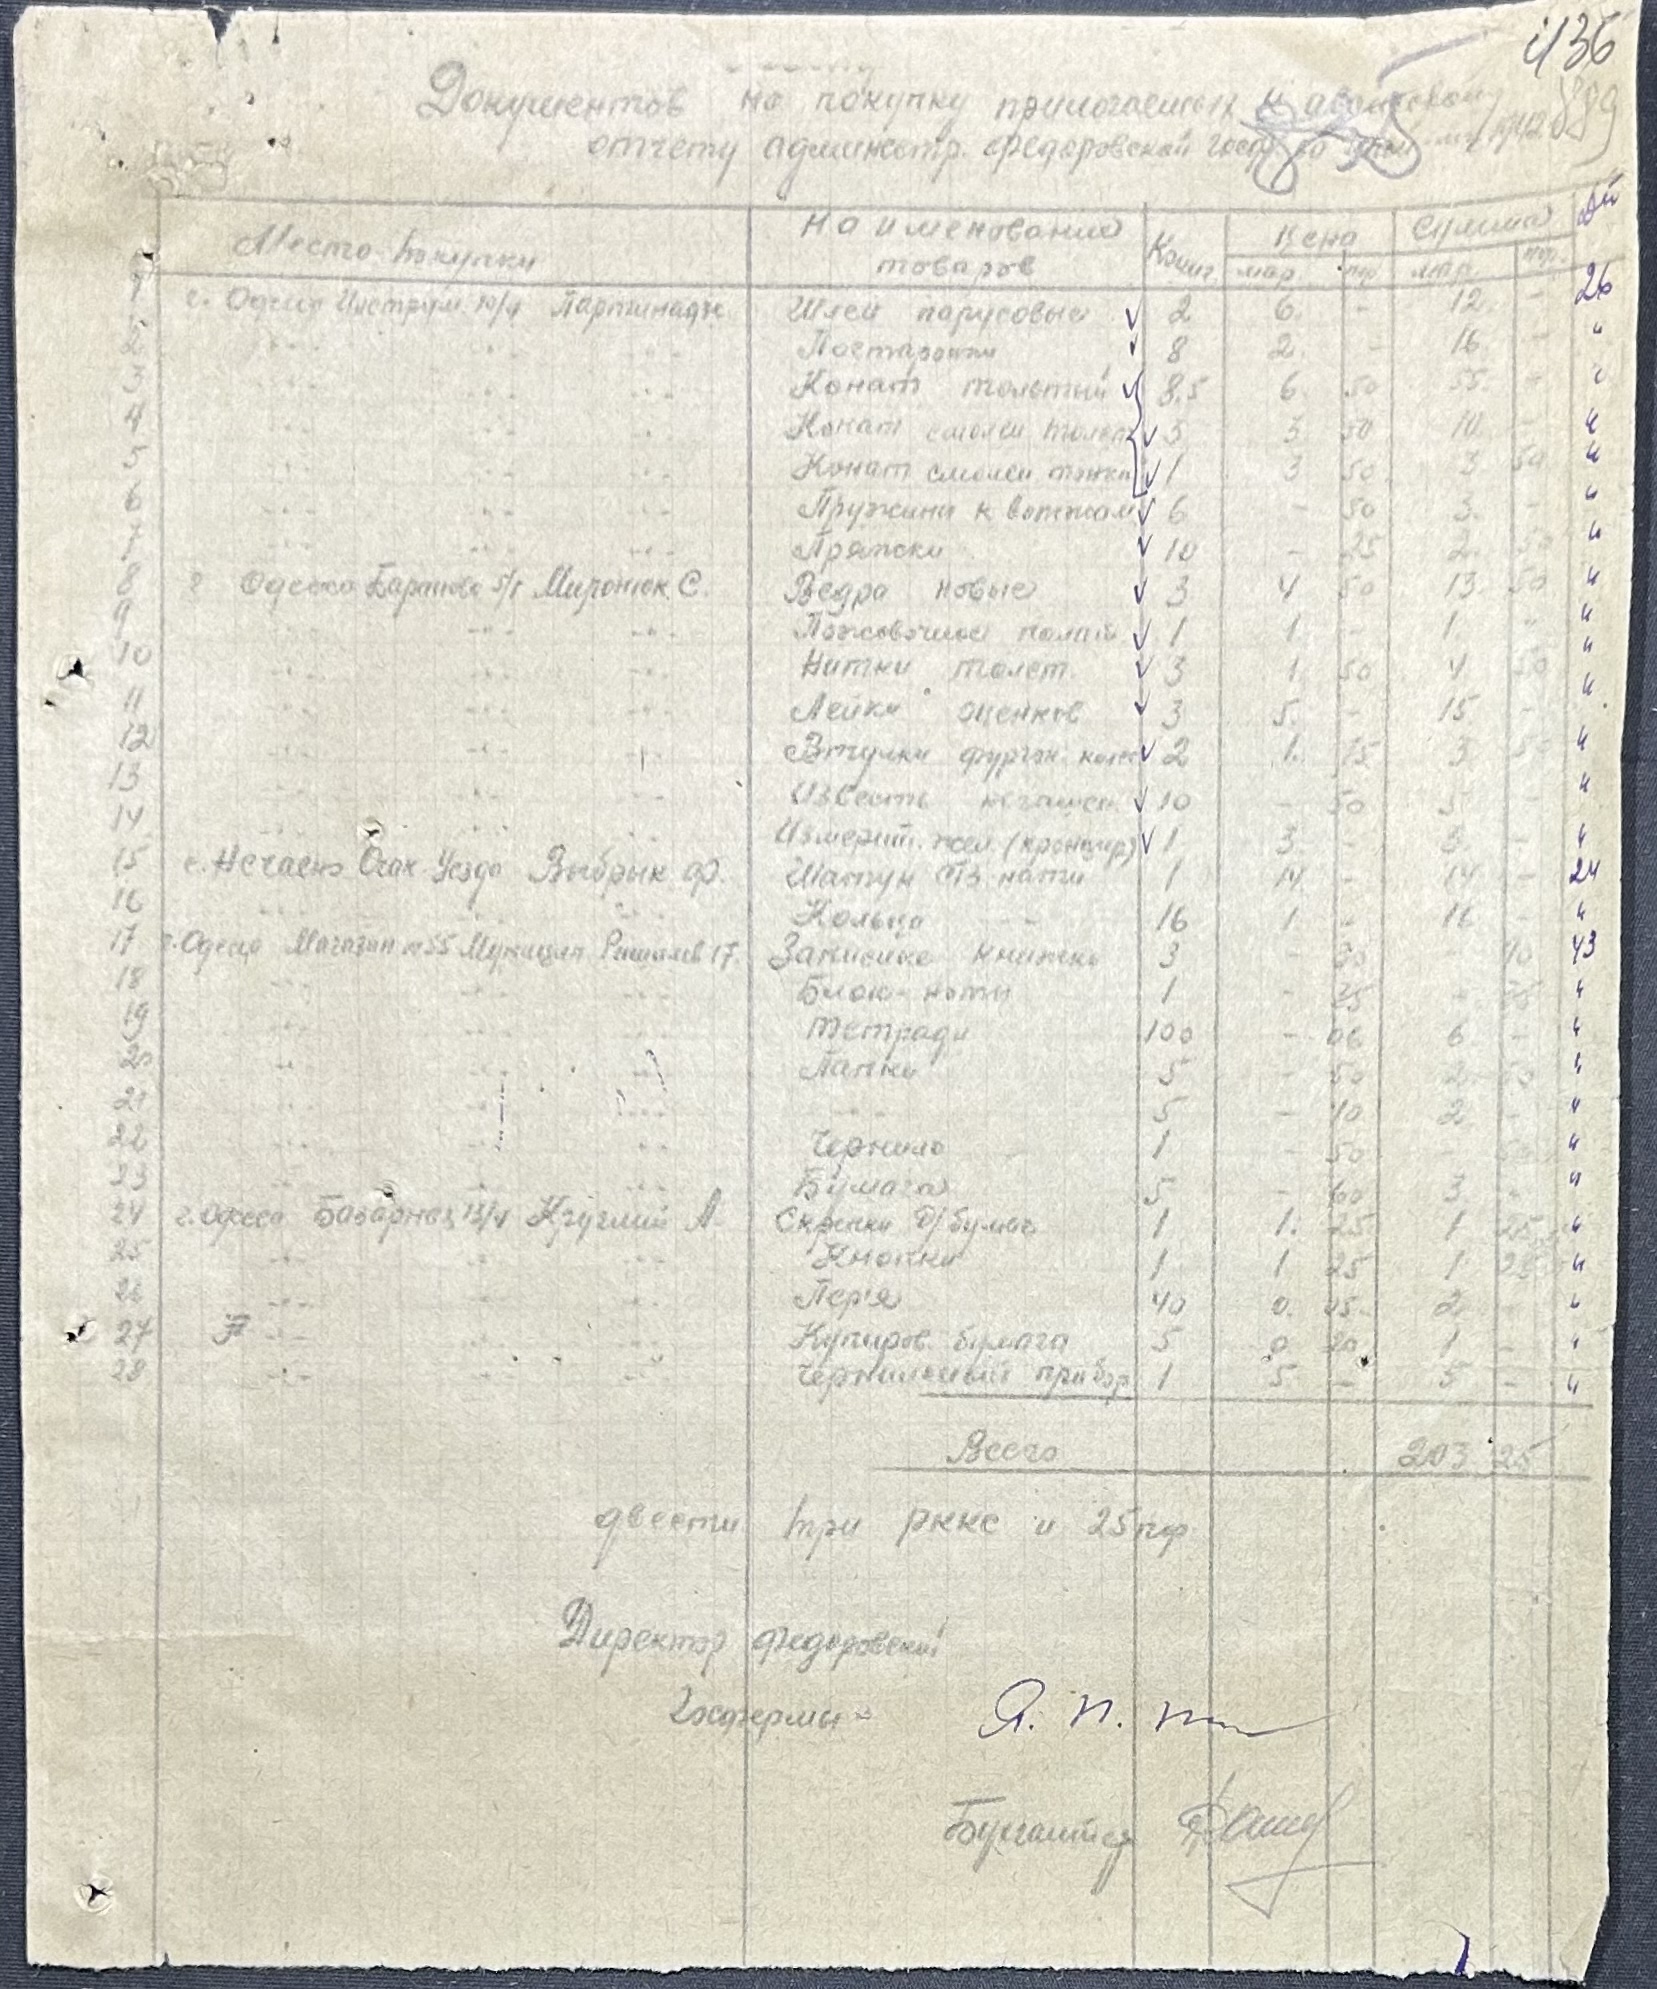 136
889
Документов на покупку прилогаемых к авансовому
отчету администр. Федоровской госф.
Место покупки Наименование товаров Колич. Цена Сумма
мар. пф. мар. пф.
1 г. Одесса 10/4 Шлеи парусовые 2 6. - 12. - 26
2 Постаронки 8 2. - 16. - "
3 Канат толстый 8,5 6. 50 55. - "
4 Канат смолен толст 3 3. 50 10. - "
5 Канат смолен тонки 1 3 50 3 50 "
6 Пружини к вожжам 6 - 50 3. - "
7 Пряжки 10 - 25 2. 50 "
8 г Одесса 5/8 Миронюк С. Ведра новые 3 4 50 13 50 "
9 1 1. - 1. - "
10 Нитки толст. 3 1. 50 4 50 "
11 Лейки оценков 3 5. - 15. - "
12 Втулки фургон. 2 1. 75 3. 50 "
13 Известь негашен. 10 - 50 5 - "
14 Измерит. жел. (кронцир) 1 3. - 3. - "
15 с. Нечаено Очак Уезда Выбрык Ф. Шатун СТЗ нати 1 14. - 14 - 24
16 Кольца 16 1. - 16 - "
17 г. Одесса Магазин № 55 Муницип. Ришельев 17. Записные книжки 3 - 30 - 90 43
18 Блок-ноты 1 - 35 - 35 "
19 Тетради 100 - 06 6. - "
20 Папки 5 - 50 2 50 "
21 5 - 40 2 - "
22 Чернило 1 - 50 - 50 "
23 Бумага 5 - 60 3. - "
24 г. Одесса Базарная 12/4 Круглий А. Скрепки д/бумаг 1 1. 25 1 25 "
25 Кнопки 1 1 25 1 25 "
26 Пер'я 40 0. 05 2 - "
27 Купиров. бумага 5 0 20 1 - "
28 Чернильный прибор 1 5 - 5 - "
Всего 203 25
двести три РККС и 25 пф
Директор Федоровской
Госфермы -
Бугалтер